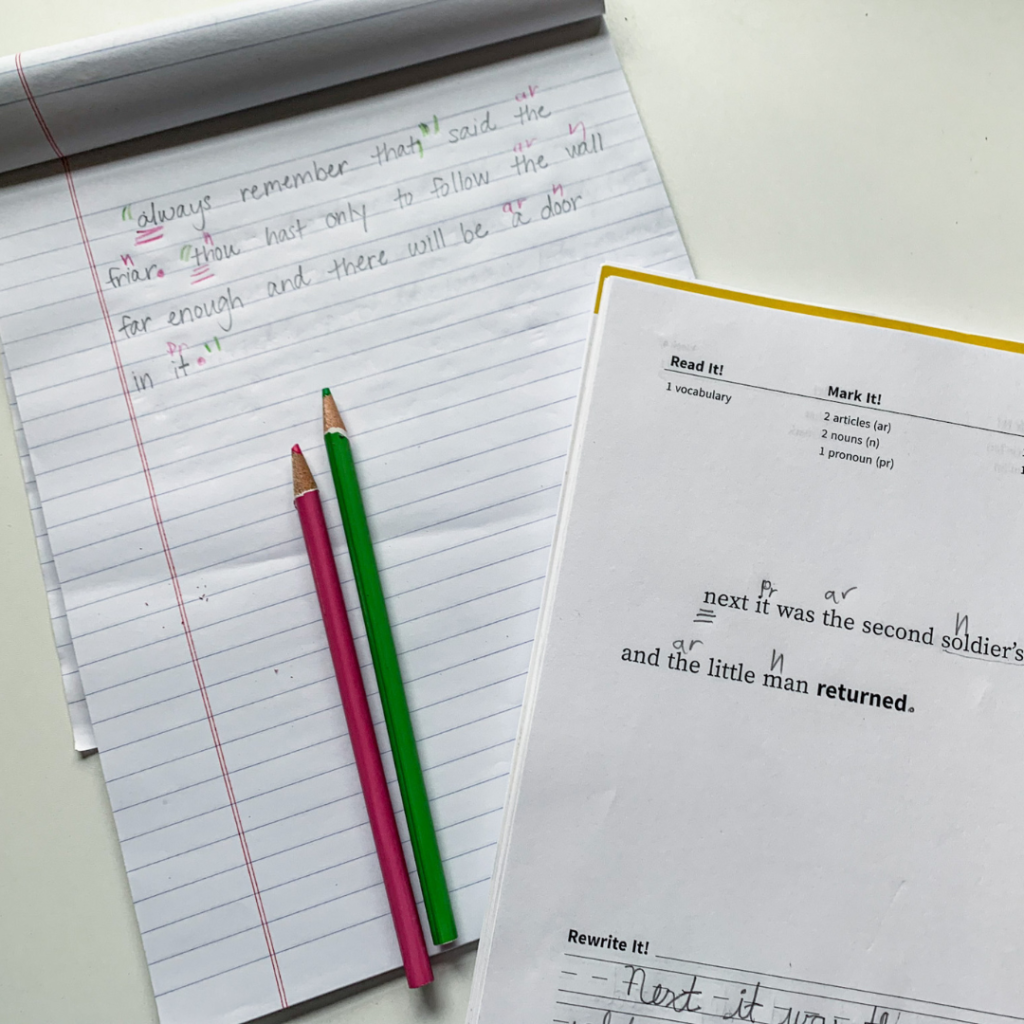 "always remember that," said the
friar. "thou hast only to follow the wall
far enough and there will be a door
in it."
ar
n
ar
n
n
ar
n
pr
Read It!
1 vocabulary
Mark It!
2 articles (ar)
2 nouns (n)
1 pronoun (pr)
pr ar n
next it was the second soldier's
ar n
and the little man returned.
Rewrite It!
Next it was